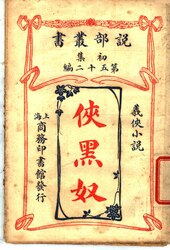 說部叢書
初集
第五十二編
義俠小說
俠黑奴
上海商務印書館發行